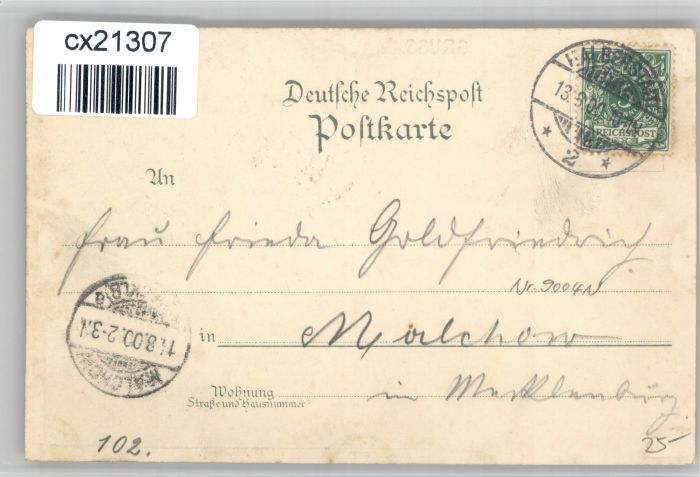 cx21307
Deutsche Reichspost
Postkarte
HALBERSTADT
13.8.00
REICHSPOST
2
An
Frau Frieda Goldfriedrich
Nr. 9004 N
in Malchow
MALCHOW
14.8.00.2-3.N
Wohnung
Straße und Hausnummer
in Mecklenburg.
102.
25-